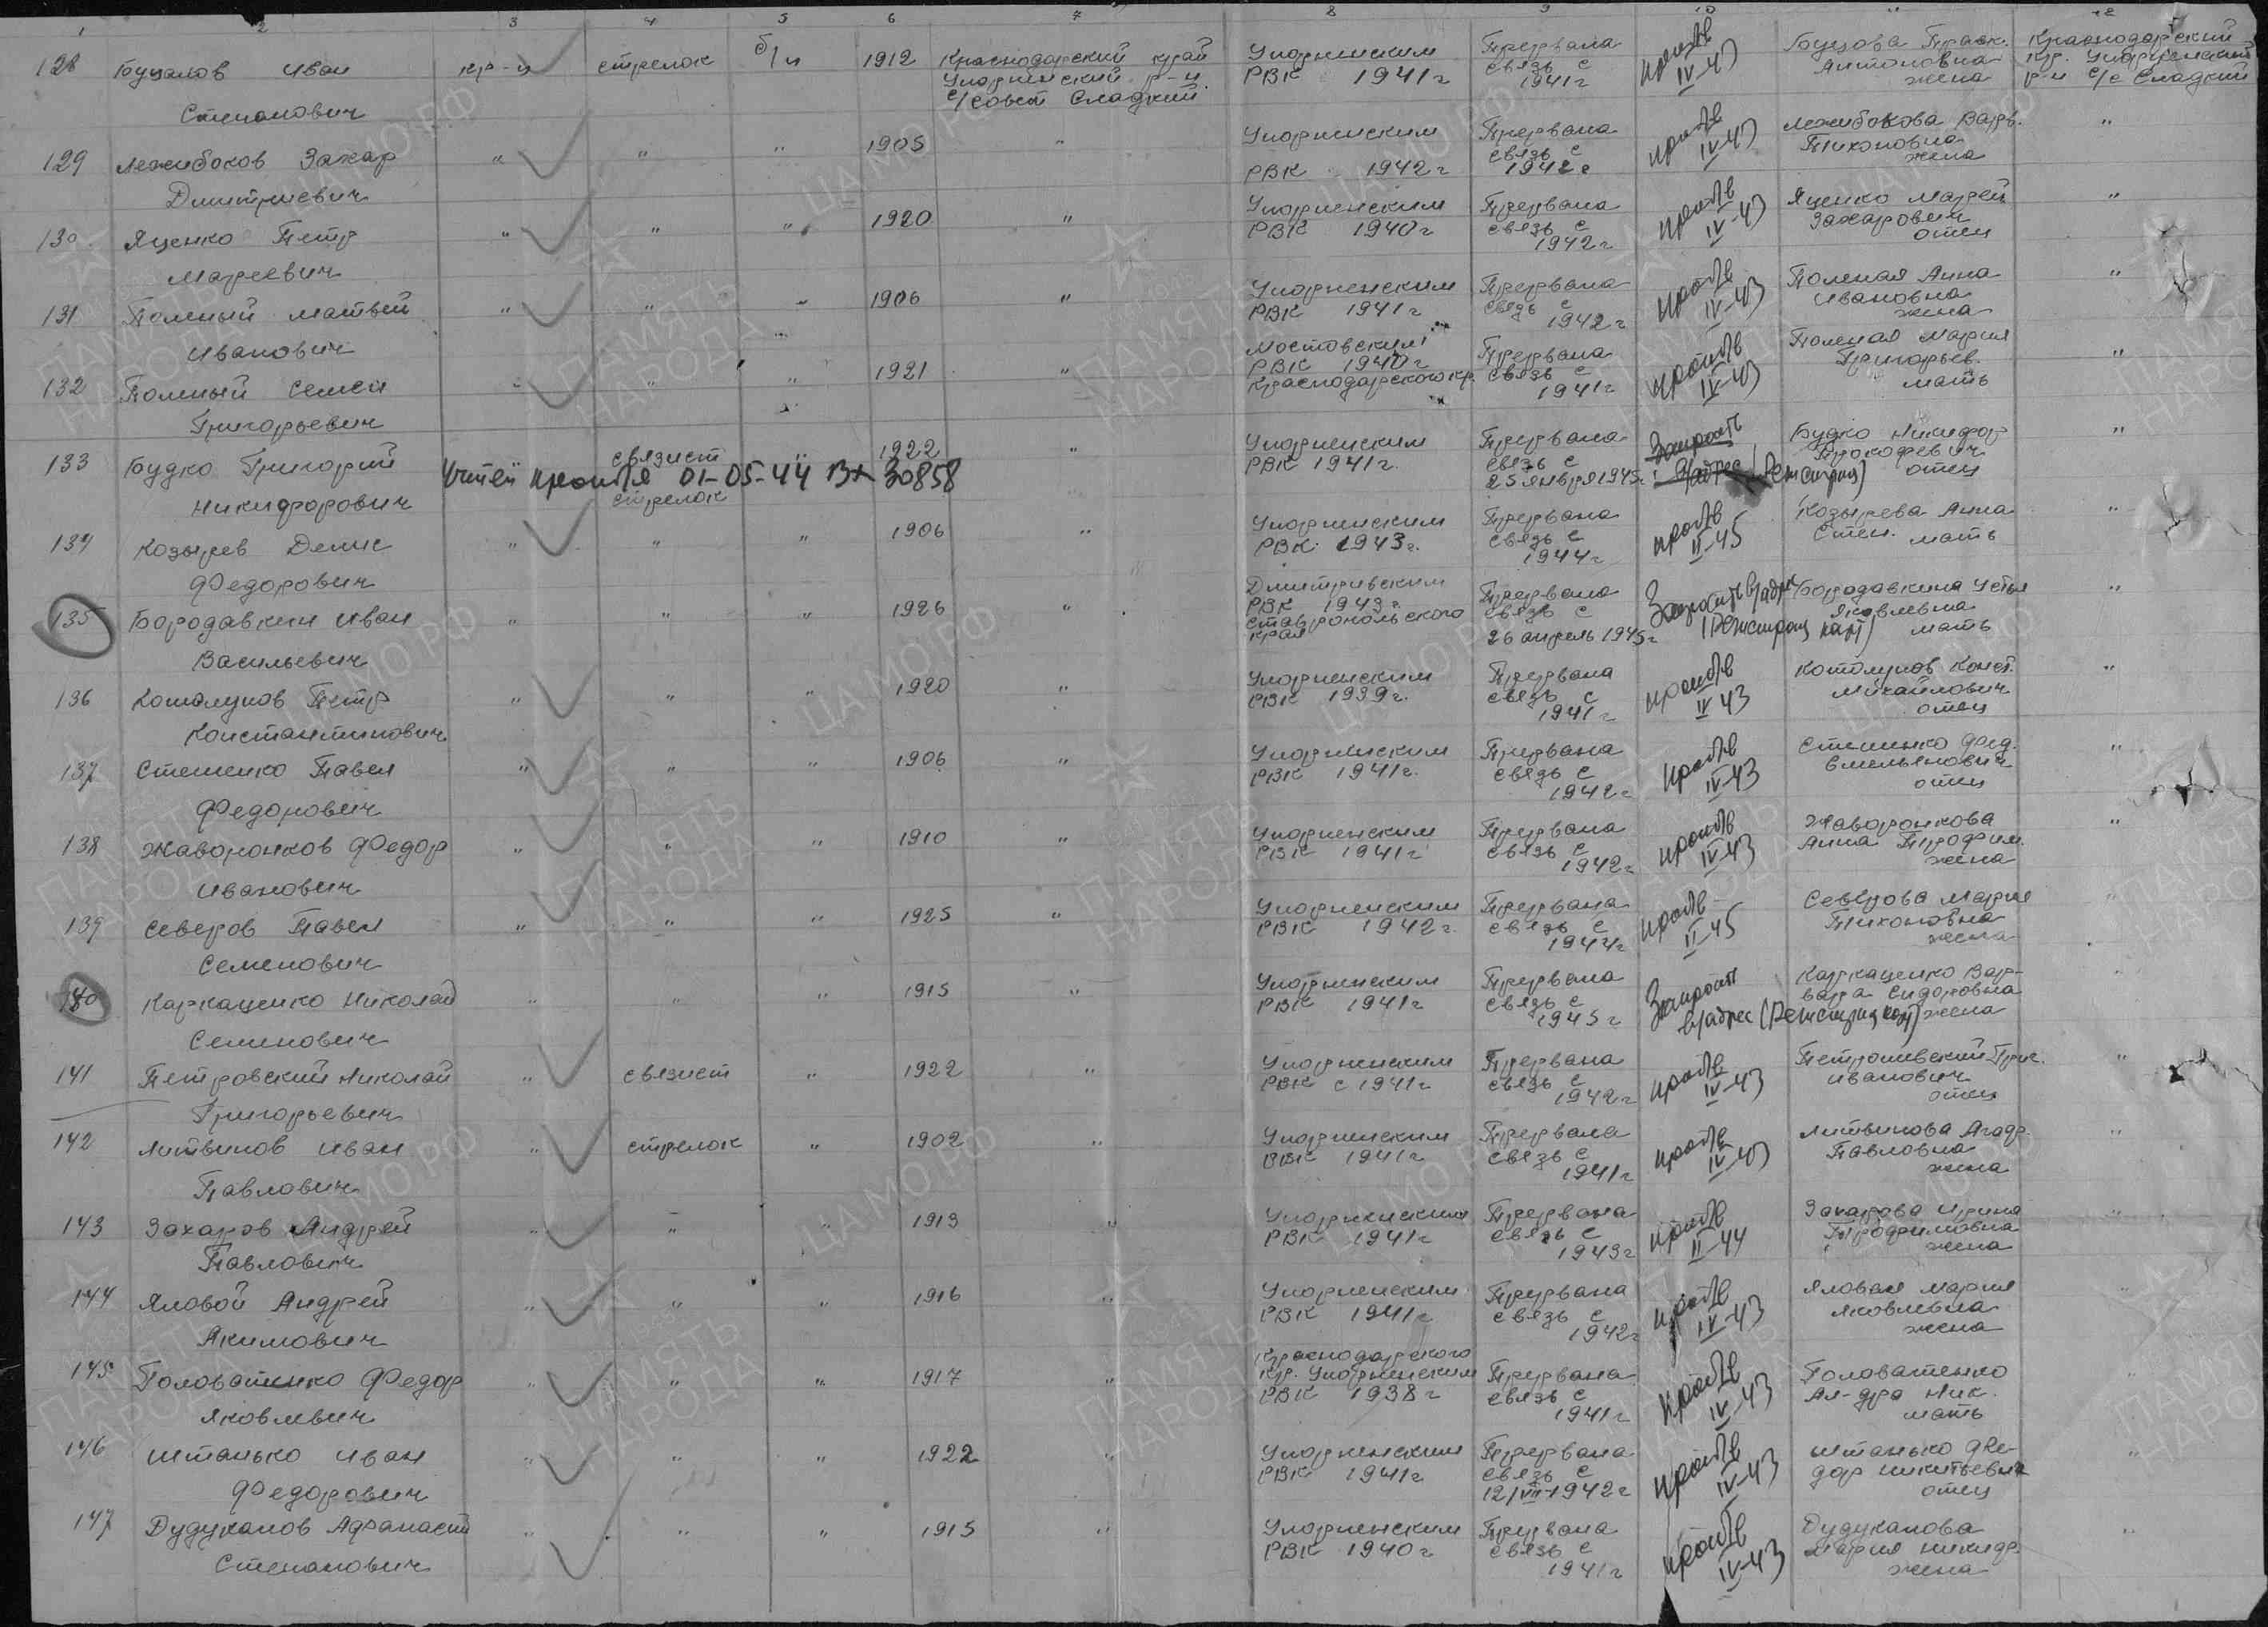 1 2 3 4 5 6 7 8 9 10 11 12
128 Гоуцалов Иван Степанович кр-ц стрелок б/п 1912 Краснодарский край Упорненский р-н с/совет Сладкий Упорненским РВК 1941г Прервана связь с 1941г проп/в IV-43 Гоуцова Праск. Антоновна жена Краснодарский кр. Упорненский р-н с/с Сладкий
129 Межибоков Захар Дмитриевич " " " 1905 " Упорненским РВК 1942г Прервана связь с 1942г проп/в IV-43 Межибокова Варв. Тихоновна жена "
130 Яценко Петр Марееевич " " " 1920 " Упорненским РВК 1940г Прервана связь с 1942г проп/в IV-43 Яценко Марей Захарович отец "
131 Полный Матвей Иванович " " " 1906 " Упорненским РВК 1941г Прервана связь с 1942г проп/в IV-43 Полная Анна Ивановна жена "
132 Полный Семен Григорьевич " " " 1921 " Мостовским РВК 1940г Краснодарского кр. Прервана связь с 1941г проп/в IV-43 Полная Мария Григорьев. мать "
133 Будко Григорий Никифорович связист " 1922 " Упорненским РВК 1941г. Прервана связь с 25 января 1945г. Запросить в/адрес (Регистрац) Будко Никифор Прокофьевич отец "
Учтен пропв/в 01-05-44 Вх 30858
134 Козырев Денис Федорович " стрелок " " 1906 " Упорненским РВК 1943г. Прервана связь с 1944г проп/в II-45 Козырева Анна Степ. мать "
135 Бородавкин Иван Васильевич " " " 1926 " Дмитриевским РВК 1943г. Ставропольского края Прервана связь с 26 апрель 1945г Запросить в/адрес (Регистрац карт) Бородавкина Устья Яковлевна мать "
136 Котолупов Петр Константинович " " " 1920 " Упорненским РВК 1939г. Прервана связь с 1941г проп/в IV 43 Котолупов Конст. Михайлович отец "
137 Стешенко Павел Федорович " " " 1906 " Упорненским РВК 1941г. Прервана связь с 1942г проп/в IV-43 Стешенко Фед. Емельянович отец "
138 Жаворонков Федор Иванович " " " 1910 " Упорненским РВК 1941г Прервана связь с 1942г проп/в IV-43 Жаворонкова Анна Трофим. жена "
139 Северов Павел Семенович " " " 1925 " Упорненским РВК 1942г. Прервана связь с 1944г проп/в II-45 Северова Мария Тихоновна жена "
140 Каркаценко Николай Семенович " " " 1915 " Упорненским РВК 1941г Прервана связь с 1945г Запросить в/адрес (Регистрац карт) Каркаценко Варвара Сидоровна жена "
141 Петровский Николай Григорьевич " связист " 1922 " Упорненским РВК с 1941г Прервана связь с 1942г проп/в IV-43 Григ. Иванович отец "
142 Литвинов Иван Павлович " стрелок " 1902 " Упорненским РВК 1941г Прервана связь с 1941г проп/в IV-43 Литвинова Агаф. Павловна жена "
143 Захаров Андрей Павлович " " " 1913 " Упорненским РВК 1941г Прервана связь с 1943г проп/в II-44 Захарова Ирина Трофимовна жена "
144 Яловой Андрей Акимович " " " 1916 " Упорненским РВК 1941г Прервана связь с 1942г проп/в IV-43 Яловая Мария Яковлевна жена "
145 Головатенко Федор Яковлевич " " " 1917 " Краснодарского кр. Упорненским РВК 1938г Прервана связь с 1941г проп/в IV-43 Головатенко Ал-дра Ник. мать "
146 Штанько Иван Федорович " " " 1922 " Упорненским РВК 1941г Прервана связь с 12/VII-1942г проп/в IV-43 Штанько Федор Никитьевич отец "
147 Дудуканов Афанасий Степанович " " " 1915 " Упорненским РВК 1940г Прервана связь с 1941г проп/в IV-43 Дудуканова Мария Никифр. жена "
ПАМЯТЬ НАРОДА
ЦАМО РФ